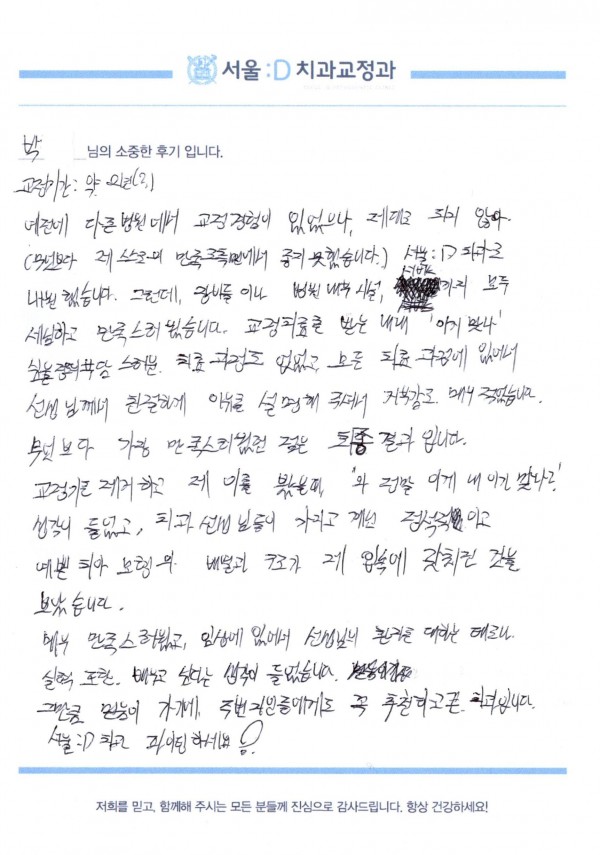 서울:D 치과교정과
박 님의 소중한 후기 입니다.
교정기간: 약
예전에 다른병원에서 교정경험이 있었으나, 제대로 되지 않아
(무엇보다 제 스스로의 만족 측면에서 좋지 못했습니다.) 서울:D 치과로
내원했습니다. 그런데, 장비들이나 병원 내부 시설, 서비스까지 모두
세심하고 만족스러웠습니다. 교정치료를 받는 내내 '이게 맞나'
싶을 정도의 부담스러운 치료 과정도 없었고 모든 치료 과정에 있어서
선생님께서 친절하게 이유를 설명해 주셔서 거부감도 매우 적었습니다.
무엇보다 가장 만족스러웠던 점은 최종 결과입니다.
교정기를 제거하고 제 이를 봤을때, '와 정말 이게 내 이가 맞나?'
생각이 들었고, 치과 선생님들이 가지고 계신 이고
예쁜 치아 모형의 배열과 구조가 제 입속에 갖춰진 것을
보았습니다.
매우 만족스러웠고, 임상에 있어서 선생님의 환자를 대하는 태도나
실력 또한 배우고 싶다는 생각이 들었습니다.
그만큼 믿음이 가기에, 주변 지인들에게도 꼭 추천하고픈 치과입니다.
서울:D 치과 파이팅하세요
저희를 믿고, 함께해 주시는 모든 분들께 진심으로 감사드립니다. 항상 건강하세요!